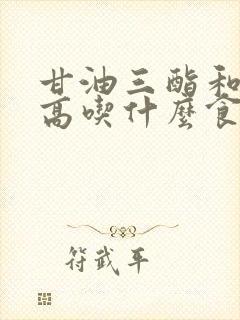 甘油三酯和
高喫什麼食
符武平